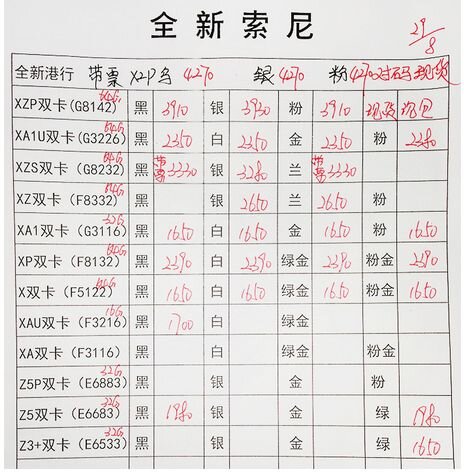 全新索尼
29/8
全新港行 带票 XZP 黑 4270 银 4270 粉 4270 对码 现货
XZP双卡(G8142) 64G 黑 3910 银 3930 粉 3910 现货
XA1U双卡(G3226) 64G 黑 2350 白 2350 金 2350 粉 2380
XZS双卡(G8232) 64G 黑 带票3330 银 3280 兰 带票3330
XZ双卡(F8332) 64G 黑 银 2650 兰 2650 粉
XA1双卡(G3116) 32G 黑 1650 白 1650 金 1650 粉 1650
XP双卡(F8132) 64G 黑 2390 白 2390 绿金 2390 粉金 2390
X双卡(F5122) 64G 黑 1650 白 1650 绿金 1650 粉金 1650
XAU双卡(F3216) 16G 黑 1700 白 绿金
XA双卡(F3116) 黑 白 绿金 粉金
Z5P双卡(E6883) 32G 黑 银 金 粉
Z5双卡(E6683) 32G 黑 1980 银 金 绿 1980
Z3+双卡(E6533) 32G 黑 白 金 绿 1650